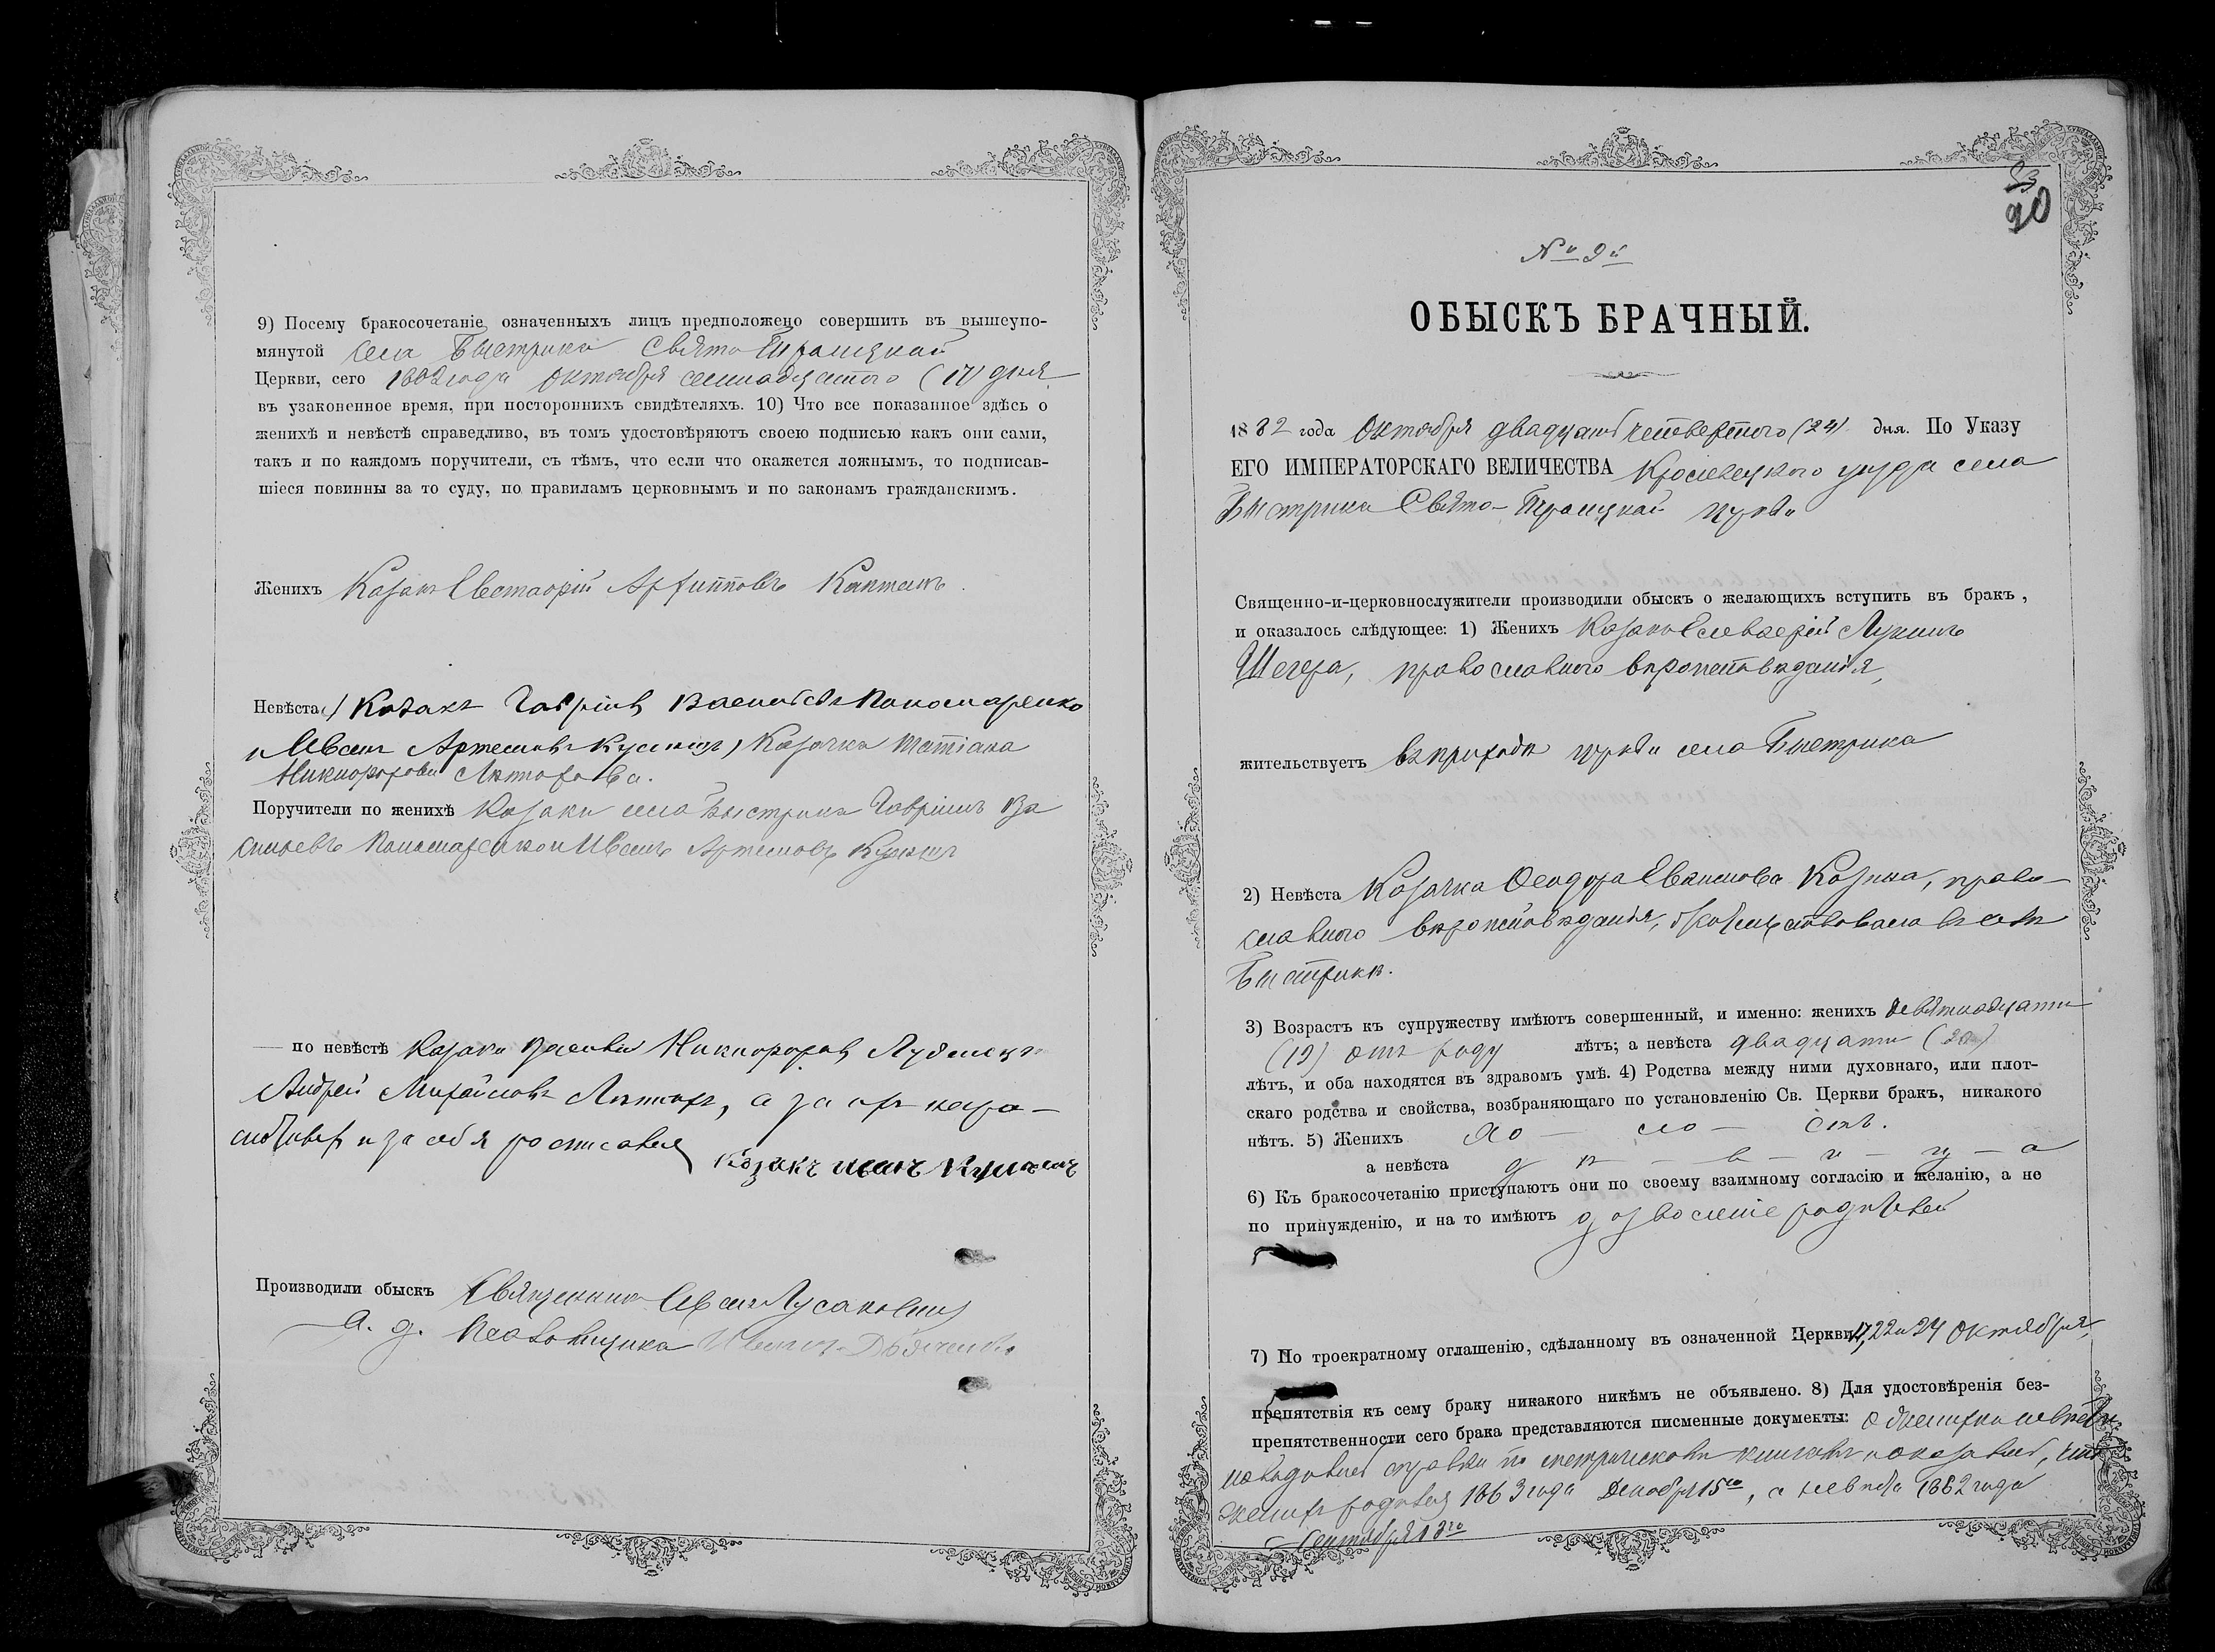 9) Посему бракосочетаніе означенныхъ лицъ предположено совершить въ вышеупо-
мянутой села Быстрика Свято Троицкой
Церкви, сего 1882 года Октября семнадцатого (17) дня
въ узаконенное время, при постороннихъ свидѣтеляхъ. 10) Что все показанное здѣсь о
женихѣ и невѣстѣ справедливо, въ томъ удостовѣряютъ своею подписью какъ они сами,
такъ и по каждомъ поручители, съ тѣмъ, что если что окажется ложнымъ, то подписав-
шіеся повинны за то суду, по правиламъ церковнымъ и по законамъ гражданскимъ.
Женихъ Казакъ Евстафій Архипповъ
Невѣста Козакъ Гавріилъ Васильевъ Пономаренко
и Иванъ Артемовъ Казачка Татіана
Никифорова
Поручители по женихѣ Казаки села Быстрика Гавріилъ Ва
сильевъ Пономаренко и Иванъ Артемовъ
по невѣстѣ Казаки Никифоровъ
Андрей Михайловъ а за ихъ негра-
и за себя росписался
Козакъ Иванъ
Производили обыскъ Священникъ
и. д. Псаломщика Иванъ
№ 9й
ОБЫСКЪ БРАЧНЫЙ.
1882 года Октября двадцать четвертого (24) дня. По Указу
ЕГО ИМПЕРАТОРСКАГО ВЕЛИЧЕСТВА Кролевецкого уезда села
Быстрика Свято-Троицкой церкви
Священно-и-церковнослужители производили обыскъ о желающихъ вступить въ бракъ,
и оказалось слѣдующее: 1) Женихъ Казакъ Елевферій Лукинъ
Шегера, православного вѣроисповѣданія,
жительствуетъ въ приходѣ церкви села Быстрика
2) Невѣста Казачка Феодора Козина, право-
славного вѣроисповѣданія, въ селѣ
Быстрикѣ.
3) Возрастъ къ супружеству имѣютъ совершенный, и именно: женихъ девятнадцати
(19) отъ роду лѣтъ; а невѣста двадцати (20)
лѣтъ, и оба находятся въ здравомъ умѣ. 4) Родства между ними духовнаго, или плот-
скаго родства и свойства, возбраняющаго по установленію Св. Церкви бракъ, никакого
нѣтъ. 5) Женихъ хо - ло - стъ.
а невѣста д - ѣ - в - и - ц - а
6) Къ бракосочетанію приступаютъ они по своему взаимному согласію и желанію, а не
по принужденію, и на то имѣютъ дозволеніе родителей
7) По троекратному оглашенію, сдѣланному въ означенной Церкви 17, 22 и 24 Октября,
препятствія къ сему браку никакого никѣмъ не объявлено. 8) Для удостовѣренія без-
препятственности сего брака представляются писменные документы: О женихѣ и невѣстѣ
наводились справки по метрическимъ книгамъ и оказалось, что
женихъ родился 1863 года Декабря 15го, а невѣста 1862 года
Сентября